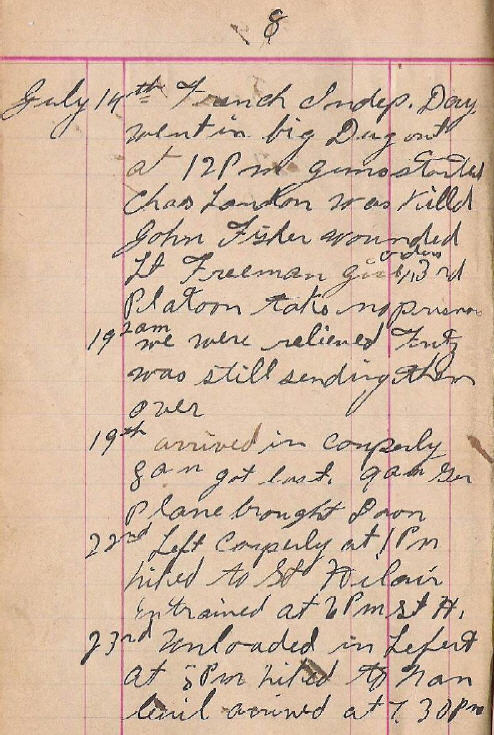 8
July 14th French Indep. Day
went in big Dug out
at 12 Pm guns started
Chas London was killd
John Fisher wounded
Lt Freeman give orders 3rd
Platoon take no prisno
19 2am we were relieved Fritz
was still sending them
over
19th arrived in couperly
8 am got lost. 9am Ger
Plane brought Down
22nd Left Couperly at 1 Pm
hiked to St Hilair
Entrained at 6 Pm St H.
23rd Unloaded in Lefert
at 5 Pm hiked to Nan
teuil arrived at 7.30 Pm